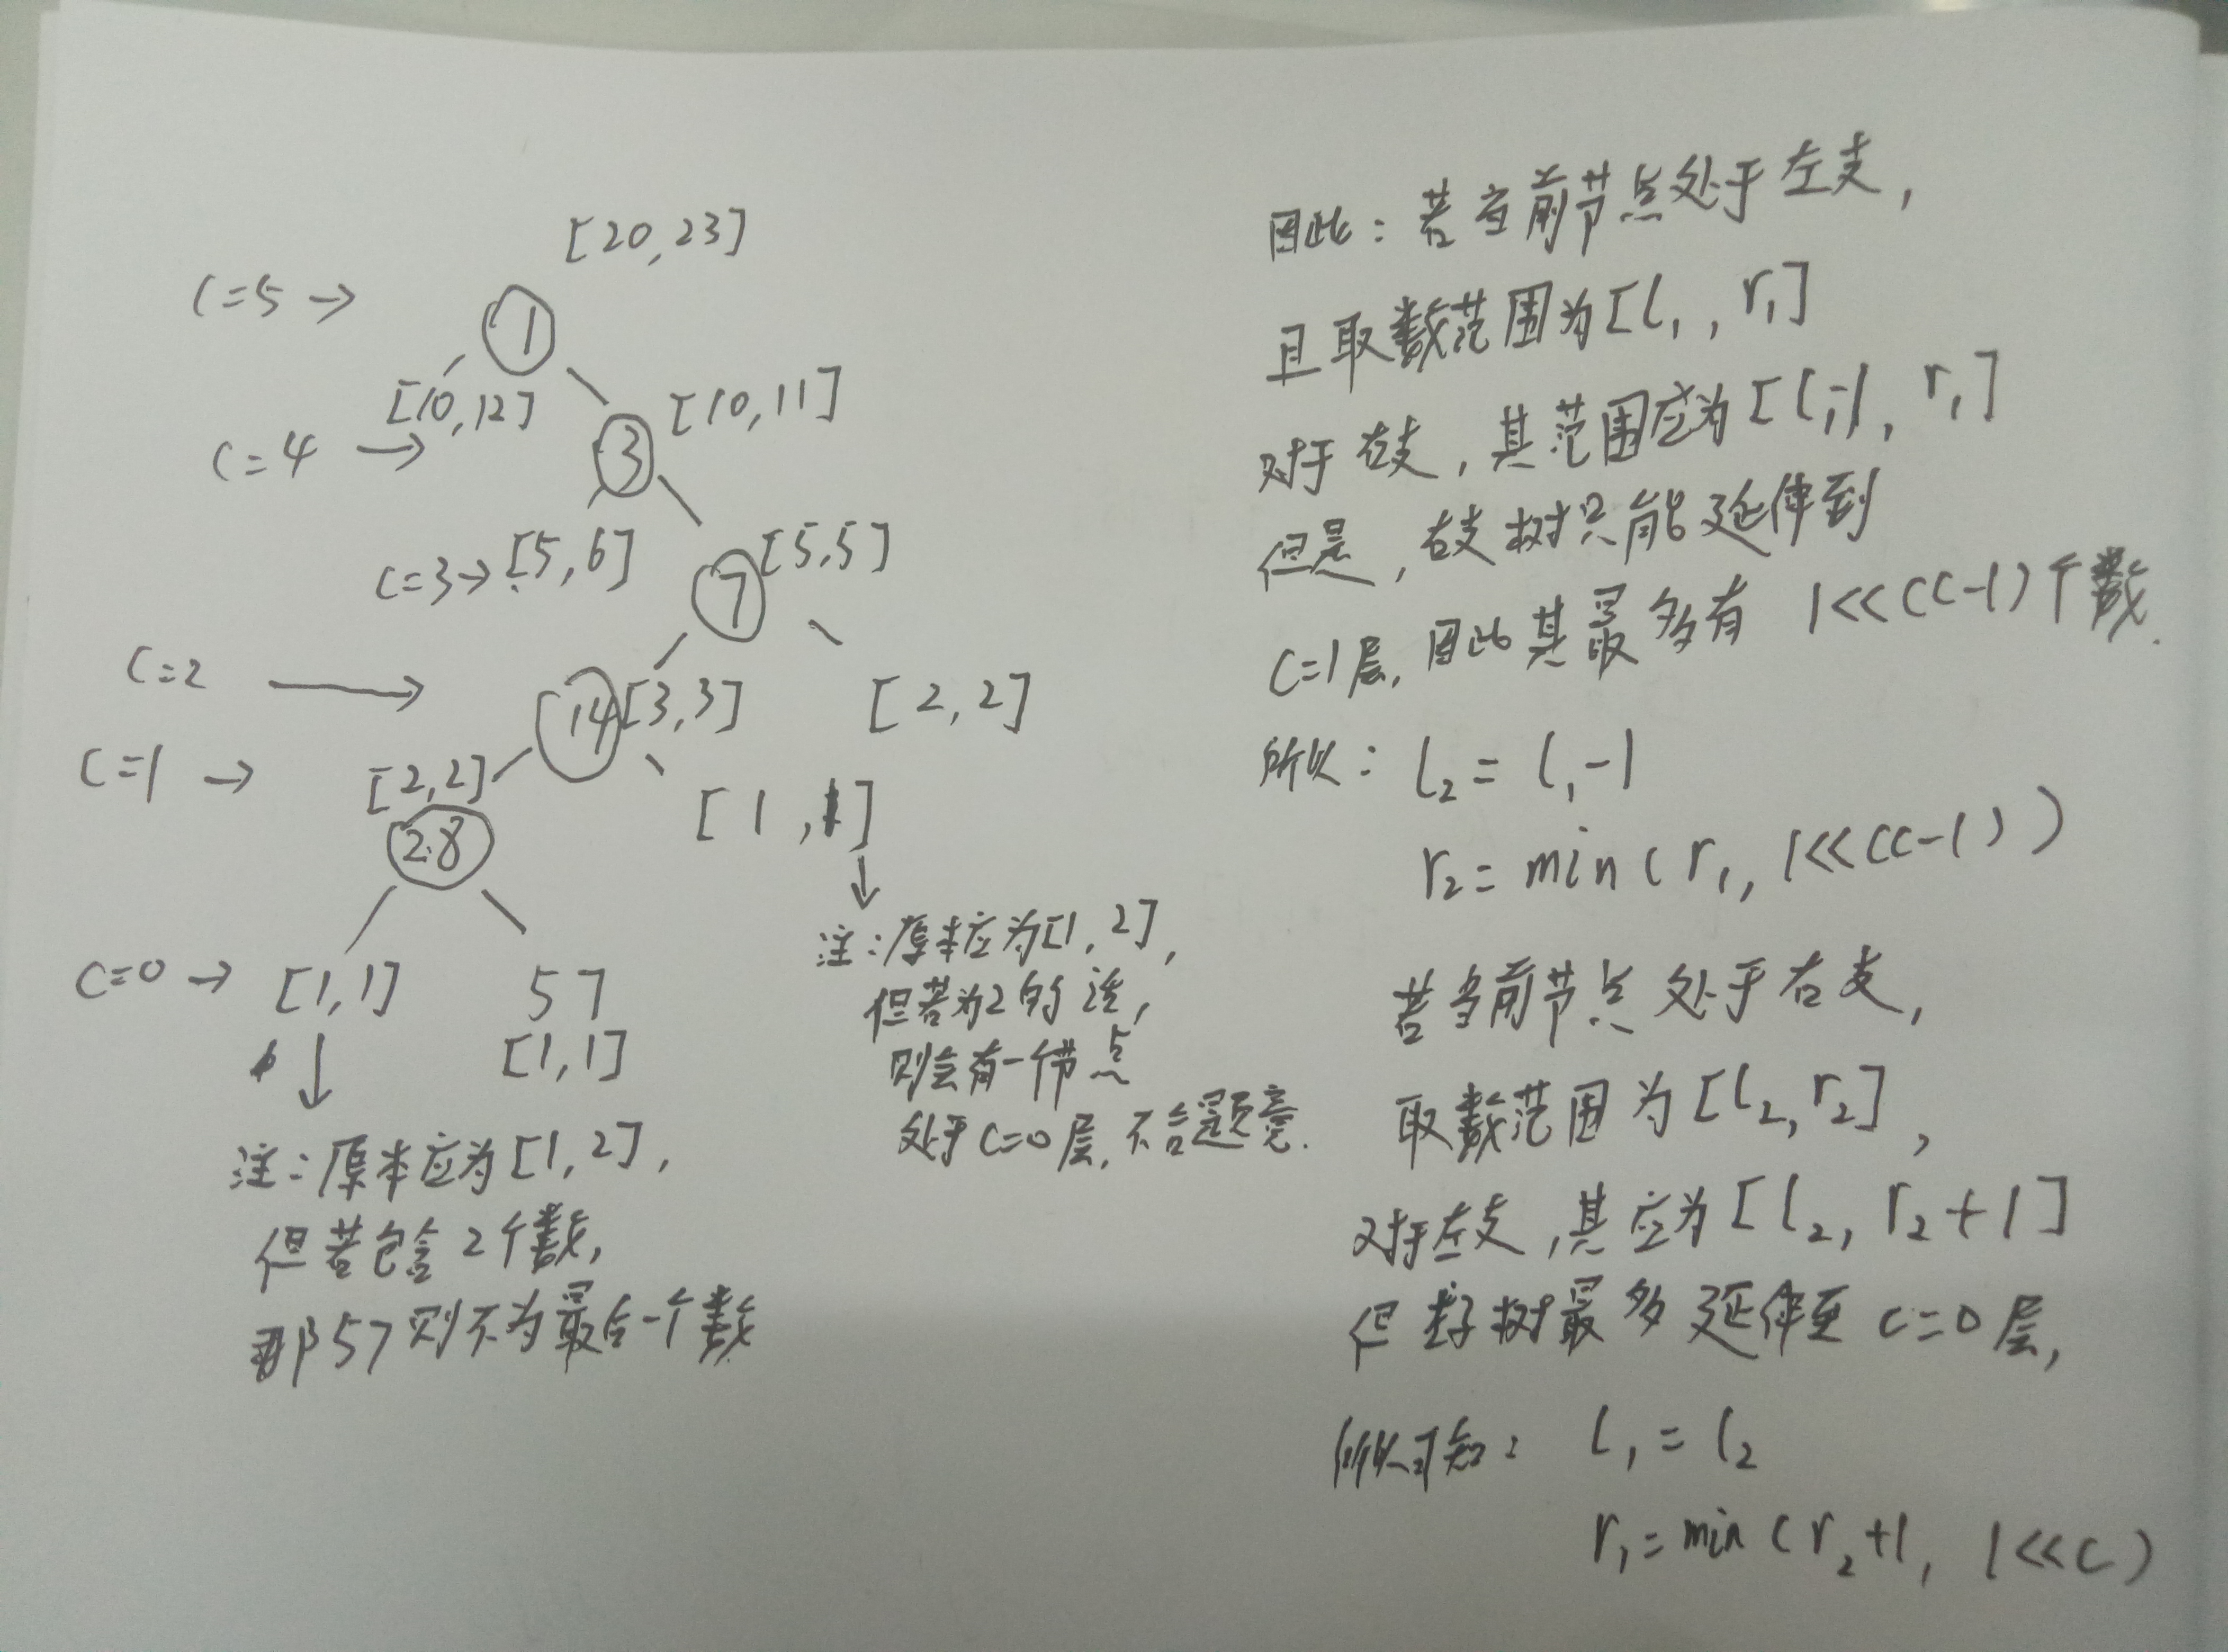 [20,23]
C=5 →
1
[10,12]
[10,11]
C=4 →
3
C=3→ [5,6]
[5,5]
7
C=2 →
14
[3,3]
[2,2]
C=1 →
[2,2]
[1,1]
28
C=0 →
[1,1]
57
[1,1]
注:原本应为[1,2],
但若为2的话,
则会有一个节点
处于C=0层,不合题意.
注:原本应为[1,2],
但若包含2个数,
那57则不为最后一个数
因此:若当前节点处于左支,
且取数范围为[l₁,r₁]
对于右支,其范围应为[l₁-1,r₁]
但是,右支树只能延伸到
C=1层,因此其最多有 1<<(C-1)个数.
所以:l₂=l₁-1
r₂=min(r₁,1<<(C-1))
若当前节点处于右支,
取数范围为[l₂,r₂],
对于左支,其应为[l₂,r₂+1]
但 树最多延伸至C=0层,
所以可知:l₁=l₂
r₁=min(r₂+1,1<<C)